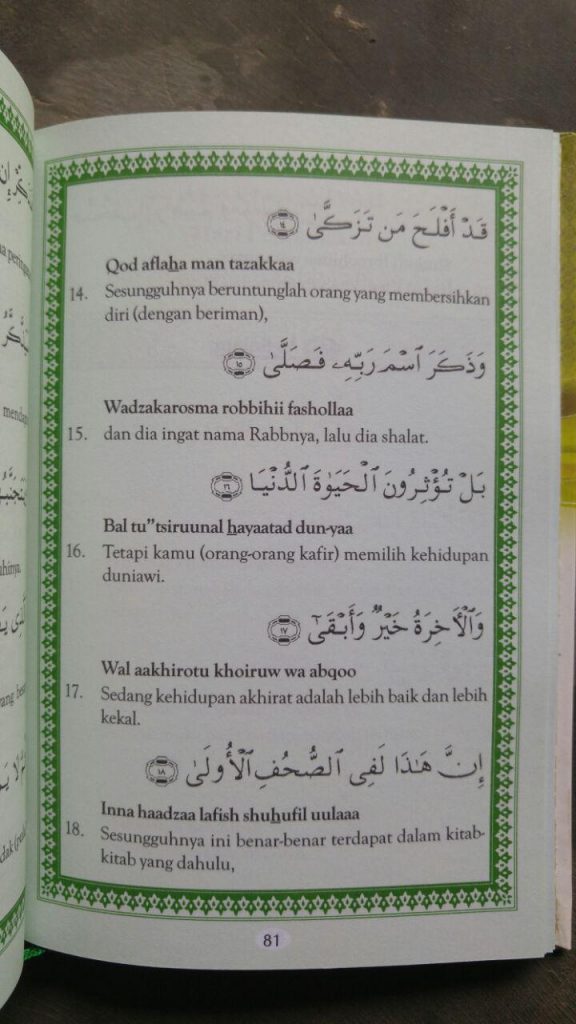 قَدْ أَفْلَحَ مَن تَزَكَّىٰ ١٤
Qod aflaha man tazakkaa
14. Sesungguhnya beruntunglah orang yang membersihkan
diri (dengan beriman),
وَذَكَرَ ٱسْمَ رَبِّهِۦ فَصَلَّىٰ ١٥
Wadzakarosma robbihii fashollaa
15. dan dia ingat nama Rabbnya, lalu dia shalat.
بَلْ تُؤْثِرُونَ ٱلْحَيَوٰةَ ٱلدُّنْيَا ١٦
Bal tu”tsiruunal hayaatad dun-yaa
16. Tetapi kamu (orang-orang kafir) memilih kehidupan
duniawi.
وَٱلْأَخِرَةُ خَيْرٌ وَأَبْقَىٰٓ ١٧
Wal aakhirotu khoiruw wa abqoo
17. Sedang kehidupan akhirat adalah lebih baik dan lebih
kekal.
إِنَّ هَـٰذَا لَفِى ٱلصُّحُفِ ٱلْأُولَىٰ ١٨
Inna haadzaa lafish shuhufil uulaaa
18. Sesungguhnya ini benar-benar terdapat dalam kitab-
kitab yang dahulu,
81